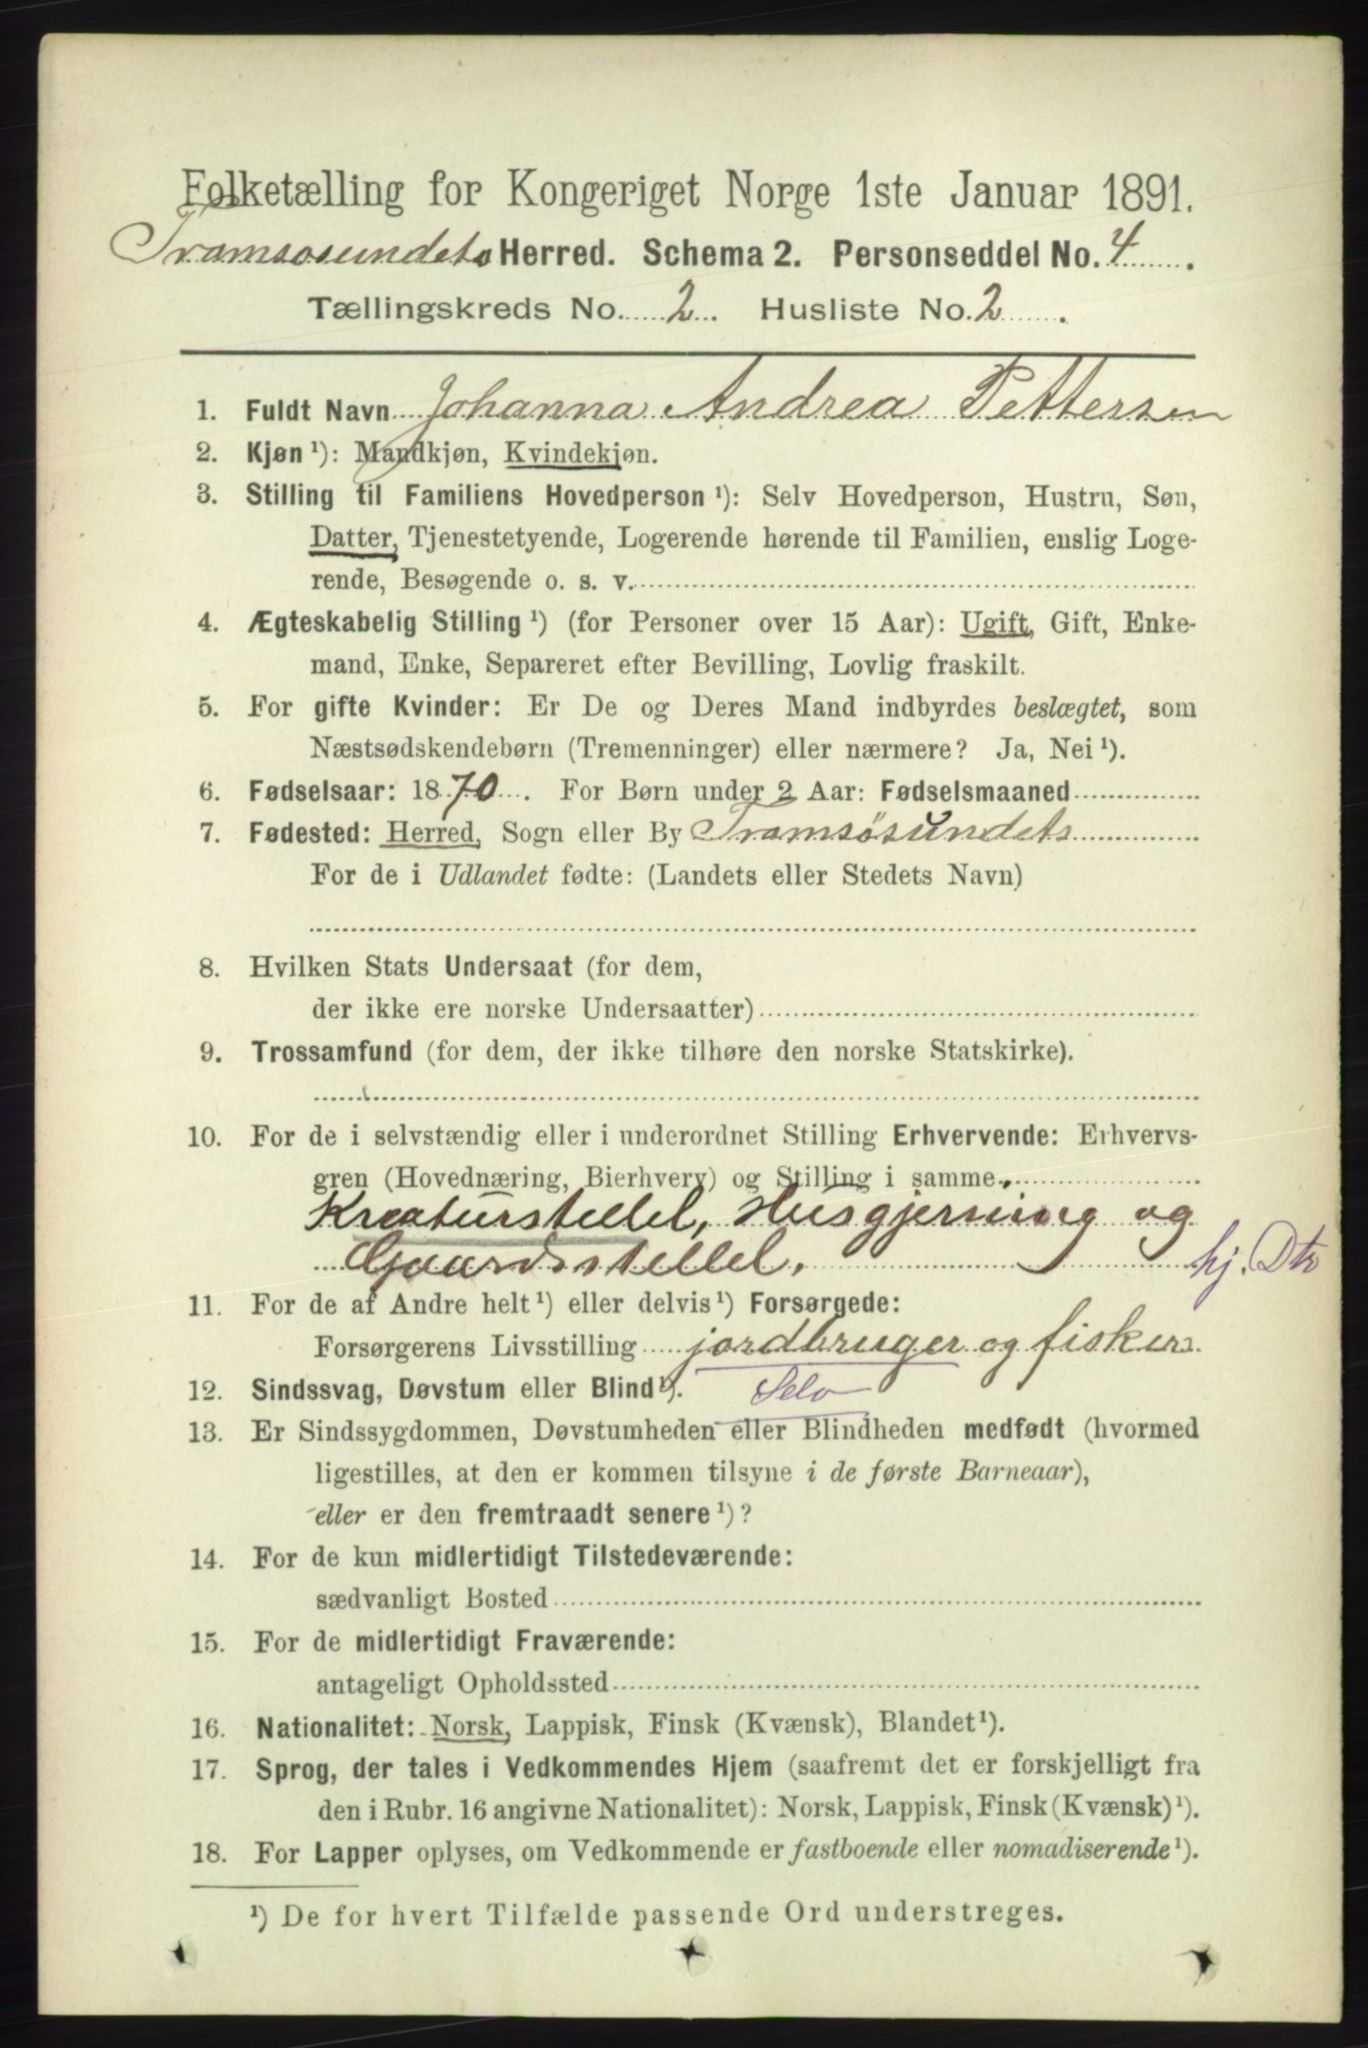 Folketælling for Kongeriget Norge 1ste Januar 1891.
Tromsosundets Herred. Schema 2. Personseddel No. 4.
Tællingskreds No. 2. Husliste No. 2.
1. Fuldt Navn Johanna Andrea Pettersen
2. Kjøn ¹): Mandkjøn, Kvindekjøn.
3. Stilling til Familiens Hovedperson ¹): Selv Hovedperson, Hustru, Søn,
Datter, Tjenestetyende, Logerende hørende til Familien, enslig Loge-
rende, Besøgende o. s. v.
4. Ægteskabelig Stilling ¹) (for Personer over 15 Aar): Ugift, Gift, Enke-
mand, Enke, Separeret efter Bevilling, Lovlig fraskilt.
5. For gifte Kvinder: Er De og Deres Mand indbyrdes beslægtet, som
Næstsødskendebørn (Tremenninger) eller nærmere? Ja, Nei ¹).
6. Fødselsaar: 1870. For Børn under 2 Aar: Fødselsmaaned
7. Fødested: Herred, Sogn eller By Tromsøsundets
For de i Udlandet fødte: (Landets eller Stedets Navn)
8. Hvilken Stats Undersaat (for dem,
der ikke ere norske Undersaatter)
9. Trossamfund (for dem, der ikke tilhøre den norske Statskirke).
10. For de i selvstændig eller i underordnet Stilling Erhvervende: Erhvervs-
gren (Hovednæring, Bierhverv) og Stilling i samme
Kreaturstellel, Husgjerning og
Gaardsstellel. hj. Dtr
11. For de af Andre helt ¹) eller delvis ¹) Forsørgede:
Forsørgerens Livsstilling jordbruger og fisker.
12. Sindssvag, Døvstum eller Blind ¹). Selv
13. Er Sindssygdommen, Døvstumheden eller Blindheden medfødt (hvormed
ligestilles, at den er kommen tilsyne i de første Barneaar),
eller er den fremtraadt senere ¹)?
14. For de kun midlertidigt Tilstedeværende:
sædvanligt Bosted
15. For de midlertidigt Fraværende:
antageligt Opholdssted
16. Nationalitet: Norsk, Lappisk, Finsk (Kvænsk), Blandet ¹).
17. Sprog, der tales i Vedkommendes Hjem (saafremt det er forskjelligt fra
den i Rubr. 16 angivne Nationalitet): Norsk, Lappisk, Finsk (Kvænsk) ¹).
18. For Lapper oplyses, om Vedkommende er fastboende eller nomadiserende ¹).
¹) De for hvert Tilfælde passende Ord understreges.